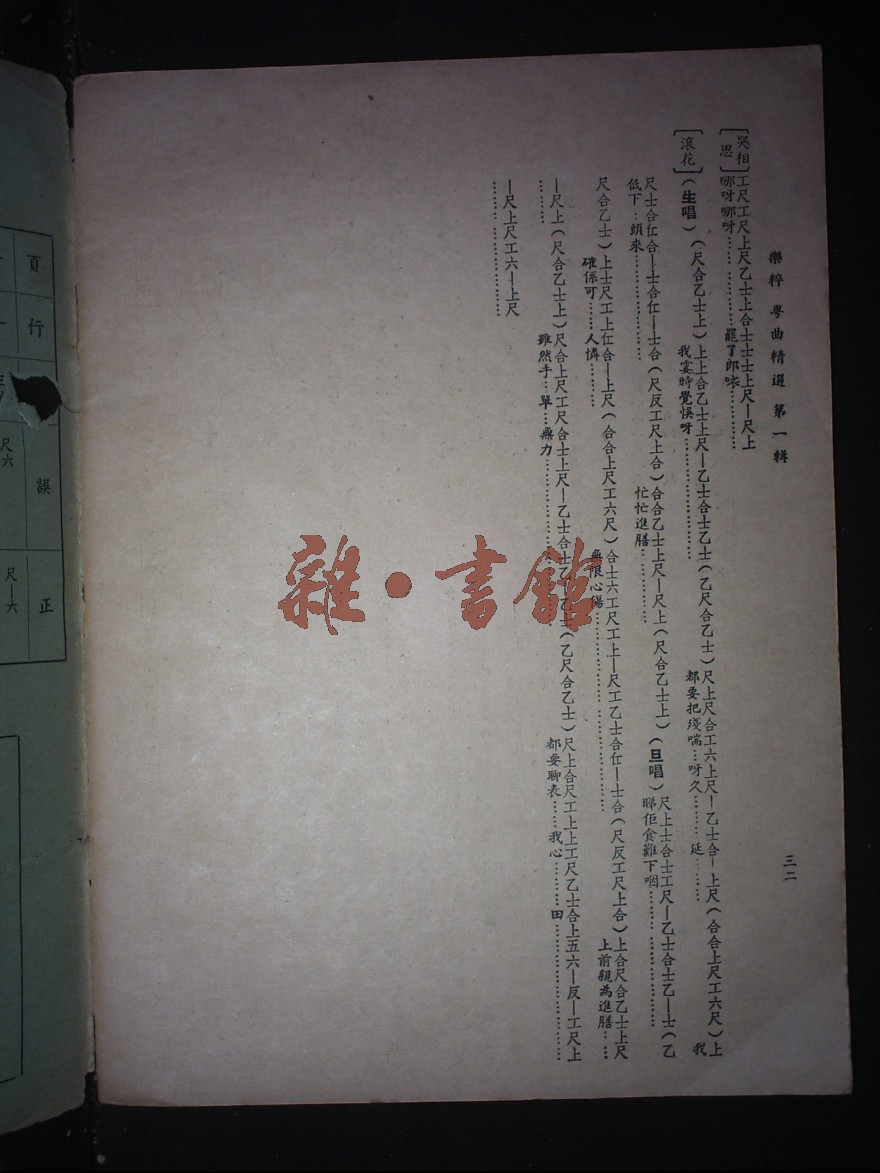 樂粹 粵曲精選 第一輯
三二
[哭相思]工尺工尺上尺乙士上合士士士上尺—尺上
哪呀哪呀……………罷了郎咳…………
[滾花](生唱)(尺合乙士上)上上合乙士上尺—乙士合士乙士(乙尺合乙士)尺上尺合工六上尺—乙士合—上尺(合合上尺工六尺)上
我霎時覺悞呀……………………都要把殘喘…呀久………延………我
尺士合仜合—士合仜—士合(尺反工尺上合)合合乙士上尺—尺上(尺合乙士上)(旦唱)尺上士合士工尺—乙士合士乙—士(乙
低下:頭來……………………忙忙進膳……………睇佢食難下咽……………………
尺合乙士)上士尺工上仜合—上尺(合合上尺工六尺)合士六工尺工上—尺工乙士合仜—士合(尺反工尺上合)上合尺合乙士上尺
確係可……人憐…………無限心傷……………………………上前親為進膳……
—尺上(尺合乙士上)尺合上尺工尺合士上尺—乙士合士乙—乙士(乙尺合乙士)尺上合尺工上上工尺乙士合上五六—反—工尺上
………雖然手…單…無力……………………都要聊表……我心………田……………………
—尺上尺工六—上尺
……………………
雜•書館
頁
行
誤
正
尺六
尺—六